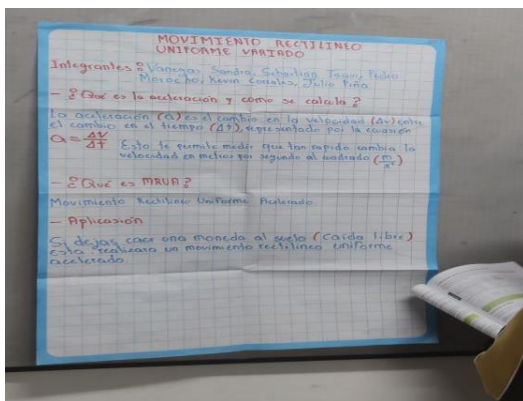 MOVIMIENTO RECTILINEO
UNIFORME VARIADO
Integrantes: Vanegas Sandra, Sebastian Tapay, Pedro
Morocho, Kevin Corrales, Julio Piña
- ¿Qué es la aceleración y como se calcula?
La aceleración (a) es el cambio en la velocidad (Δv) entre
el cambio en el tiempo (ΔT), representado por la ecuación
a = ΔV/ΔT Esto te permite medir que tan rapido cambia la
velocidad en metros por segundo al cuadrado (m/s²)
- ¿Qué es MRUA?
Movimiento Rectilineo Uniforme Acelerado
- Aplicasión
Si dejas caer una moneda al suelo (caída libre)
Esta realizara un movimiento rectilineo uniforme
acelerado